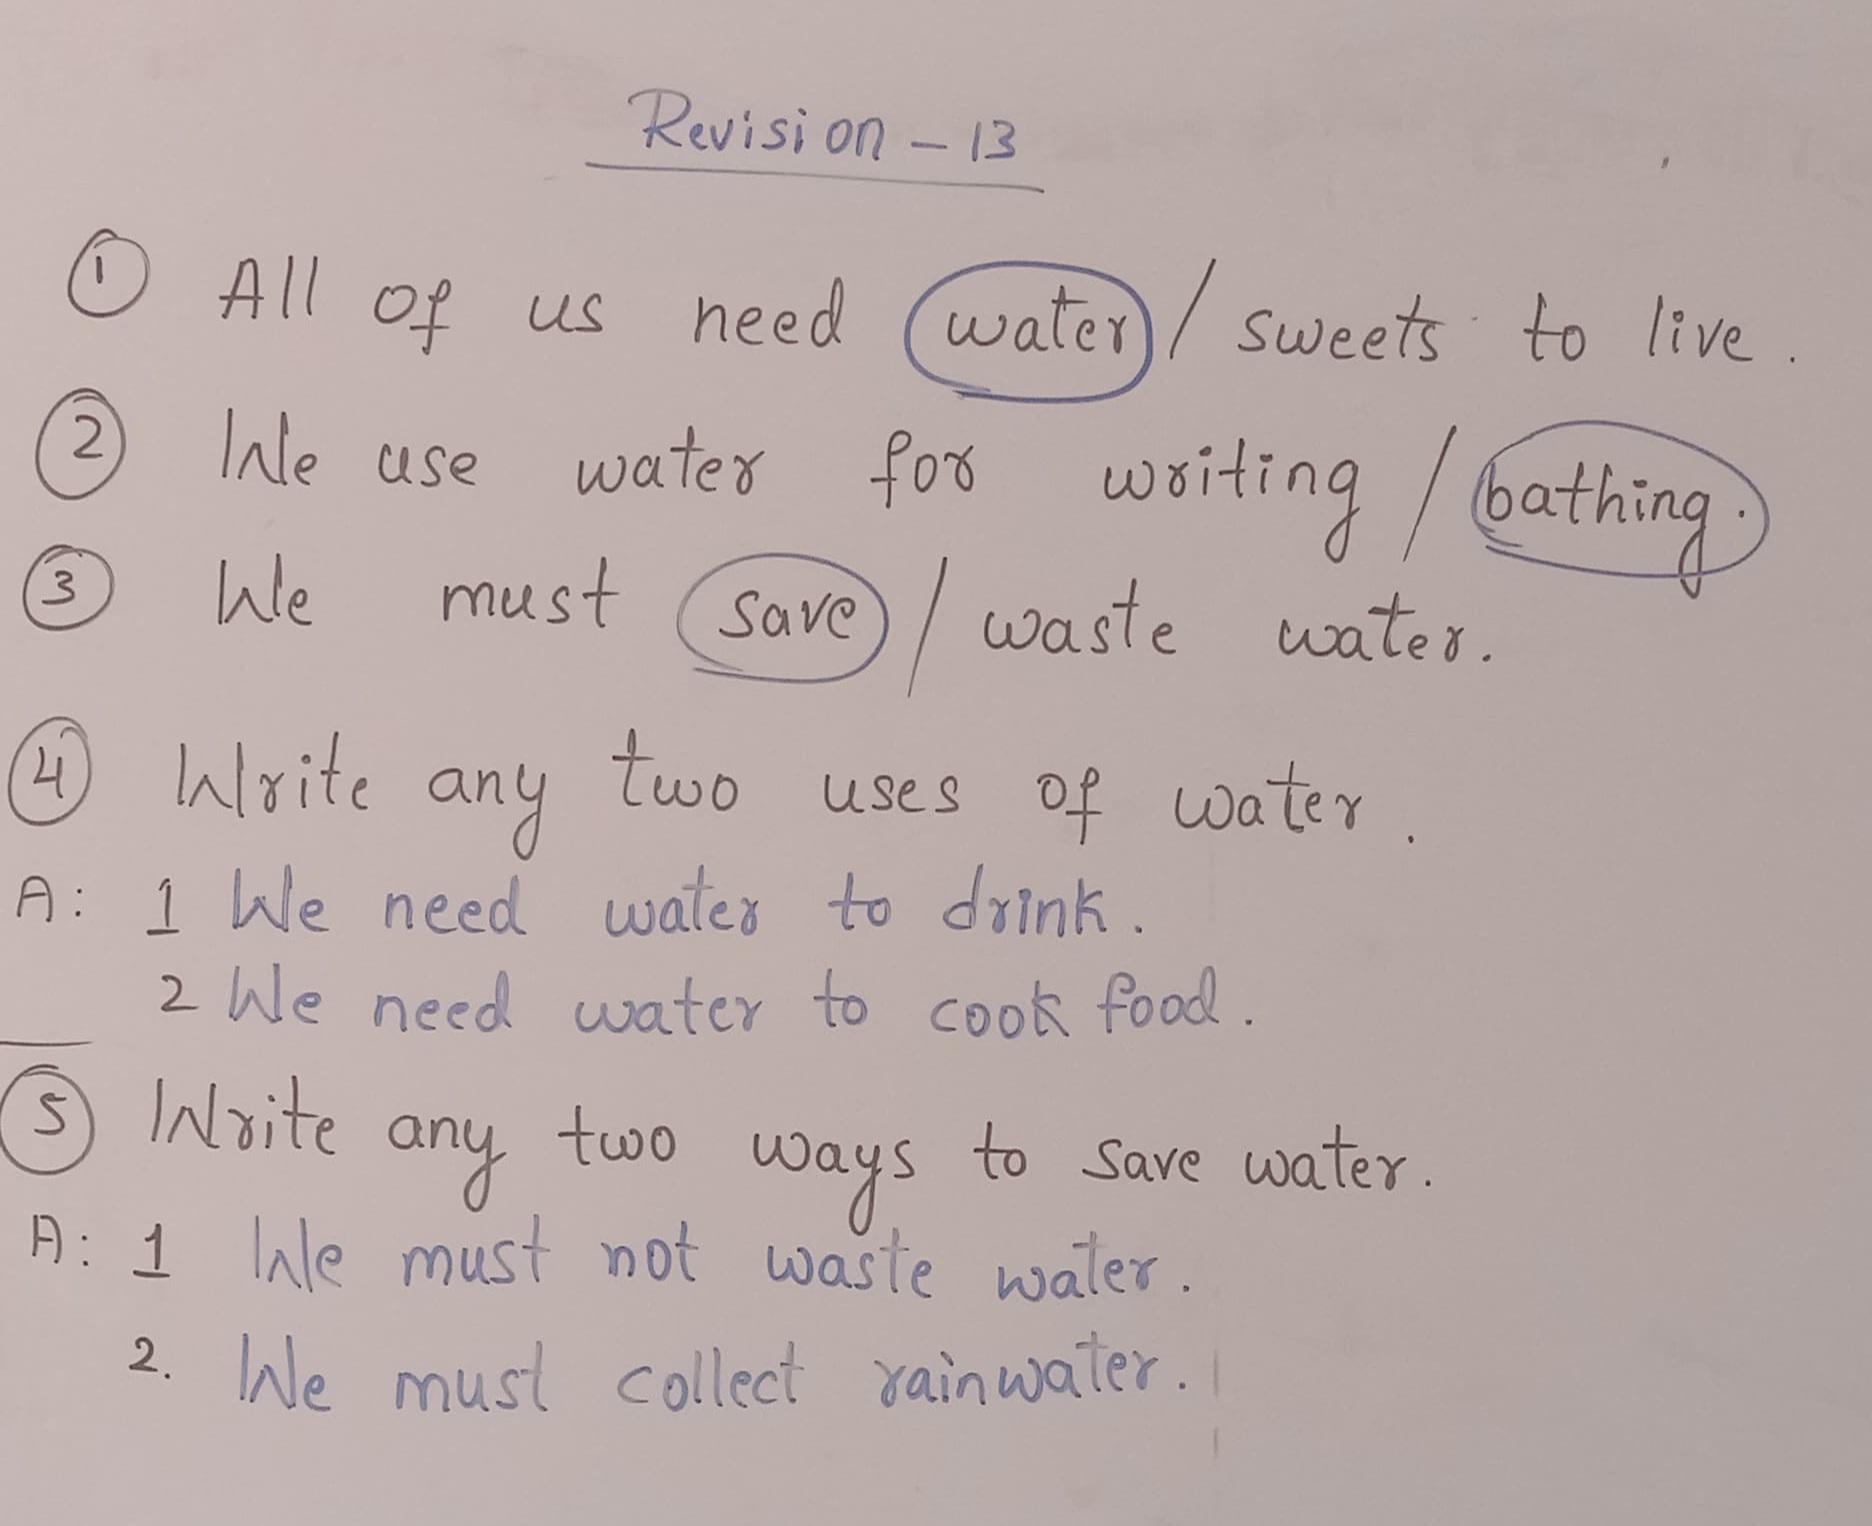 Revision - 13
① All of us need water / sweets to live.
② We use water for writing / bathing.
③ We must save / waste water.
④ Write any two uses of water.
A: 1 We need water to drink.
2 We need water to cook food.
⑤ Write any two ways to save water.
A: 1 We must not waste water.
2. We must collect rainwater.